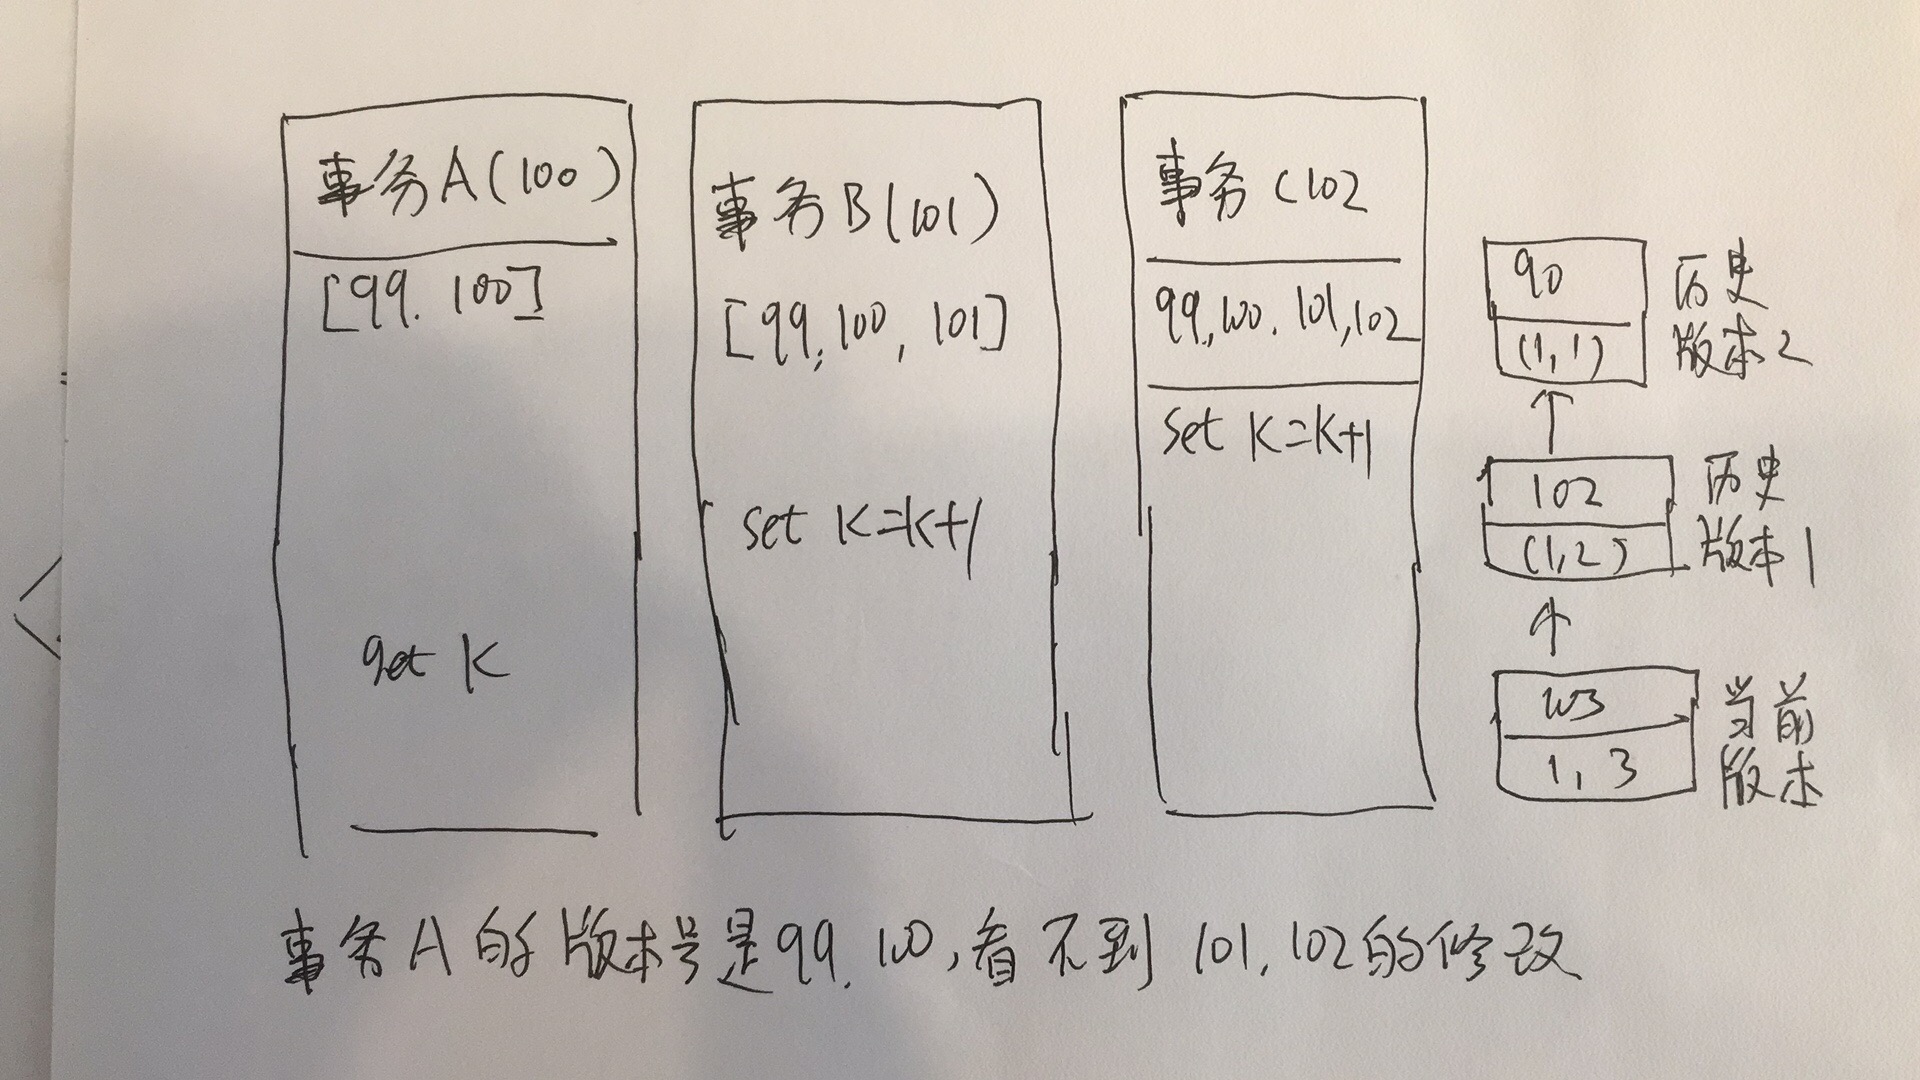 事务A(100)
[99. 100]
get K
事务B(101)
[99, 100, 101]
set K=K+1
事务 C102
99, 100. 101, 102
set K=K+1
90
(1,1)
历史
版本2
102
(1,2)
历史
版本1
103
1, 3
当前
版本
事务A的版本号是99. 100,看不到 101, 102的修改